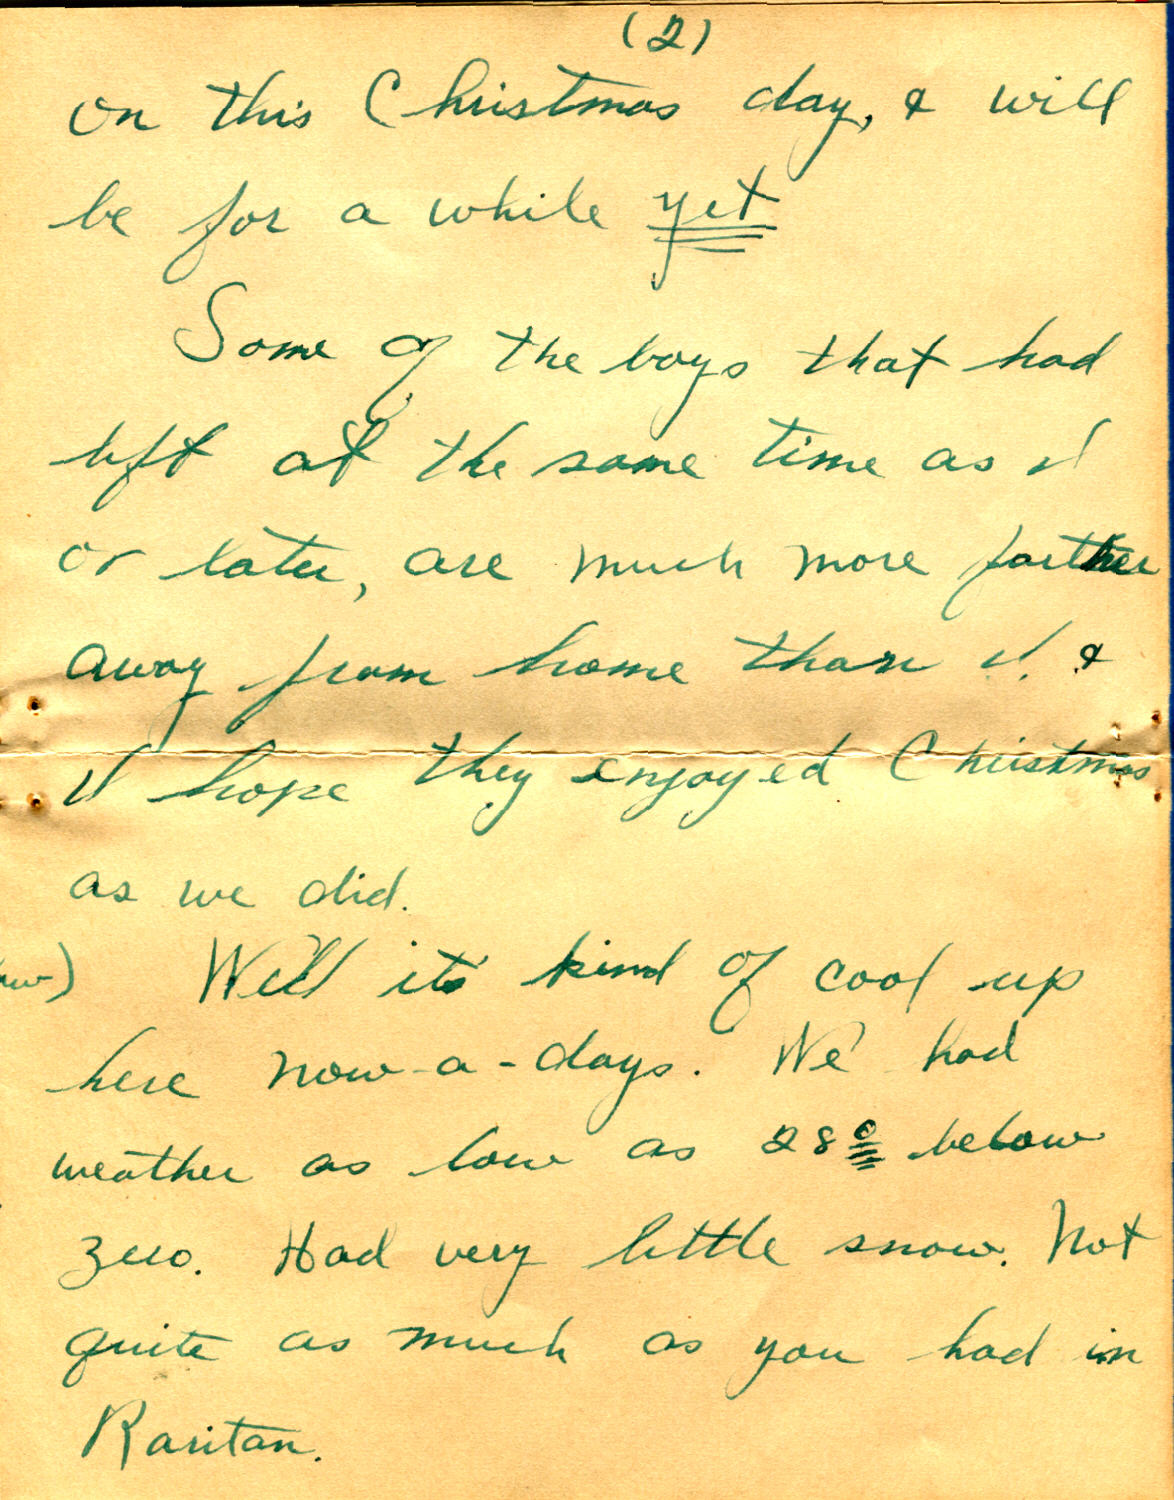 (2)
on this Christmas day, & will
be for a while yet
Some of the boys that had
left at the same time as I
or later, are much more farther
away from home than I. &
I hope they enjoyed Christmas
as we did.
Well its kind of cool up
here now-a-days. We had
weather as low as 28° below
zero. Had very little snow. Not
quite as much as you had in
Raritan.